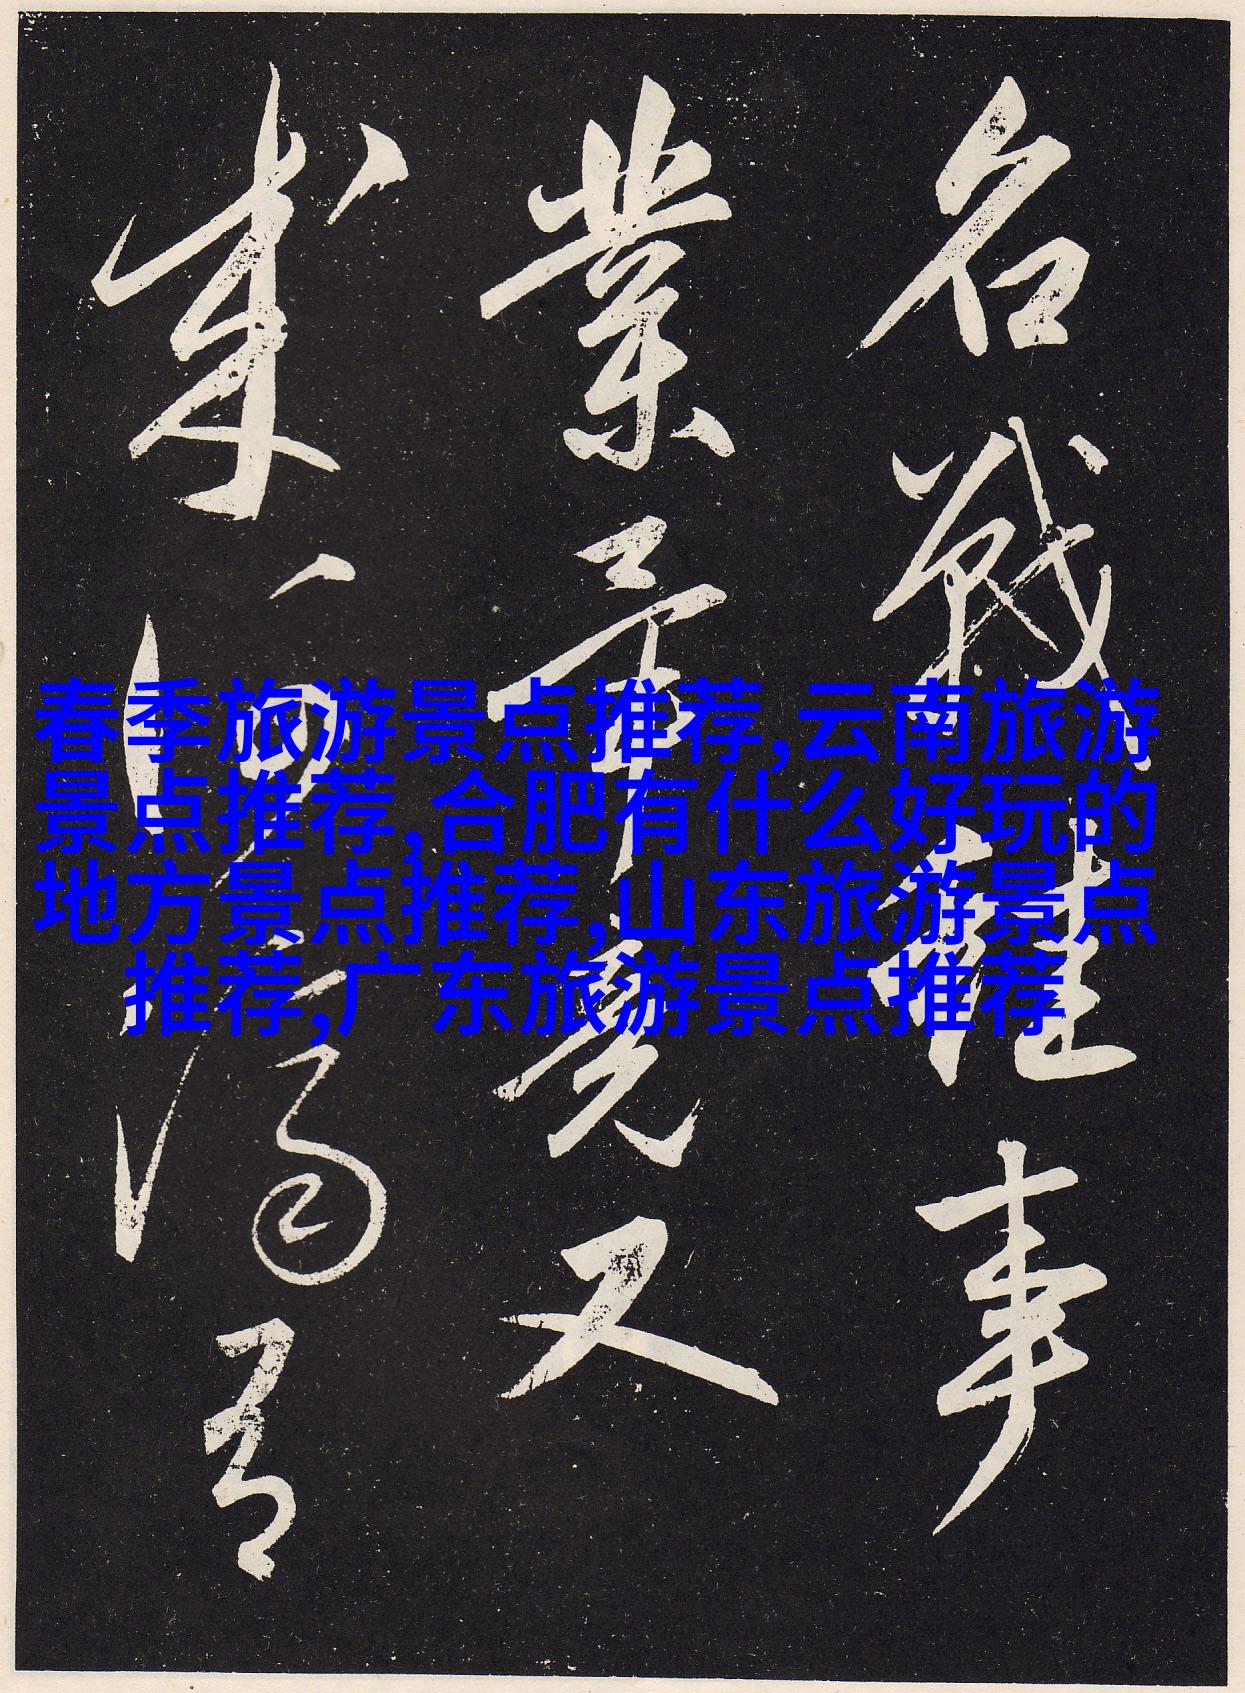 名戰雖事
業竟又
成何
春季旅游景点推荐,云南旅游
景点推荐,合肥有什么好玩的
地方景点推荐,山东旅游景点
推荐,广东旅游景点推荐